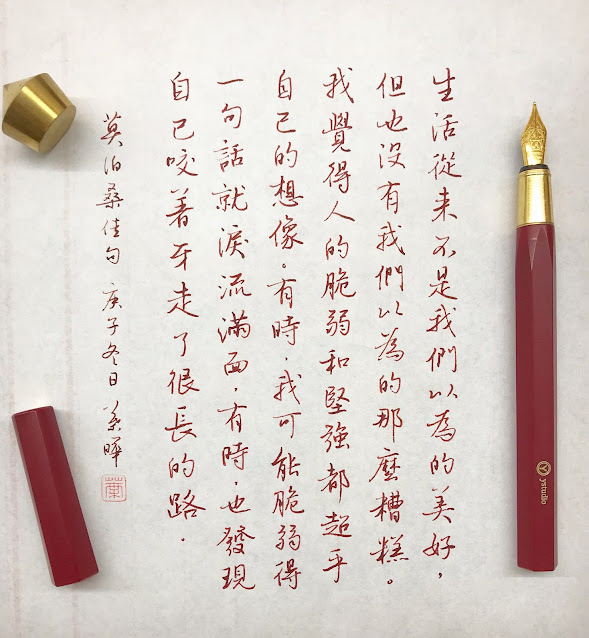 生活從来不是我們以為的美好，
但也没有我們以為的那麼糟糕。
我覺得人的脆弱和堅強都超乎
自己的想像。有時，我可能脆弱得
一句話就淚流滿面，有時，也發現
自己咬着牙走了很長的路．
莫泊桑佳句 庚子冬日 葉曄
葉
ystudio